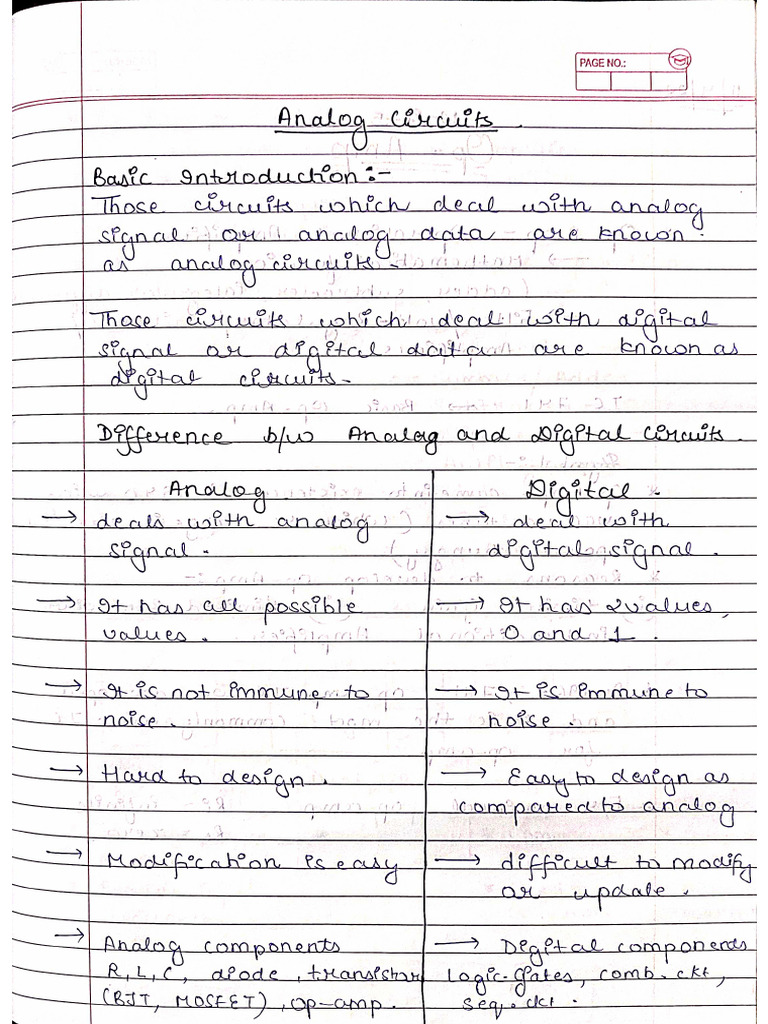 PAGE NO.:
Analog Circuits
Basic Introduction:-
Those circuits which deal with analog
signal or analog data are known
as analog circuits.
Those circuits which deal with digital
signal or digital data are known as
digital circuits.
Difference b/w Analog and Digital Circuits.
Analog
→ deals with analog
signal.
→ It has all possible
values.
→ It is not immune to
noise.
→ Hard to design.
→ Modification is easy
→ Analog components
R, L, C, diode, transistor
(BJT, MOSFET), op-amp.
Digital.
→ deal with
digital signal.
→ It has 2 values,
0 and 1.
→ It is immune to
noise.
→ Easy to design as
compared to analog
→ difficult to modify
or update.
→ Digital components
logic-gates, comb. ckt,
seq. ckt.